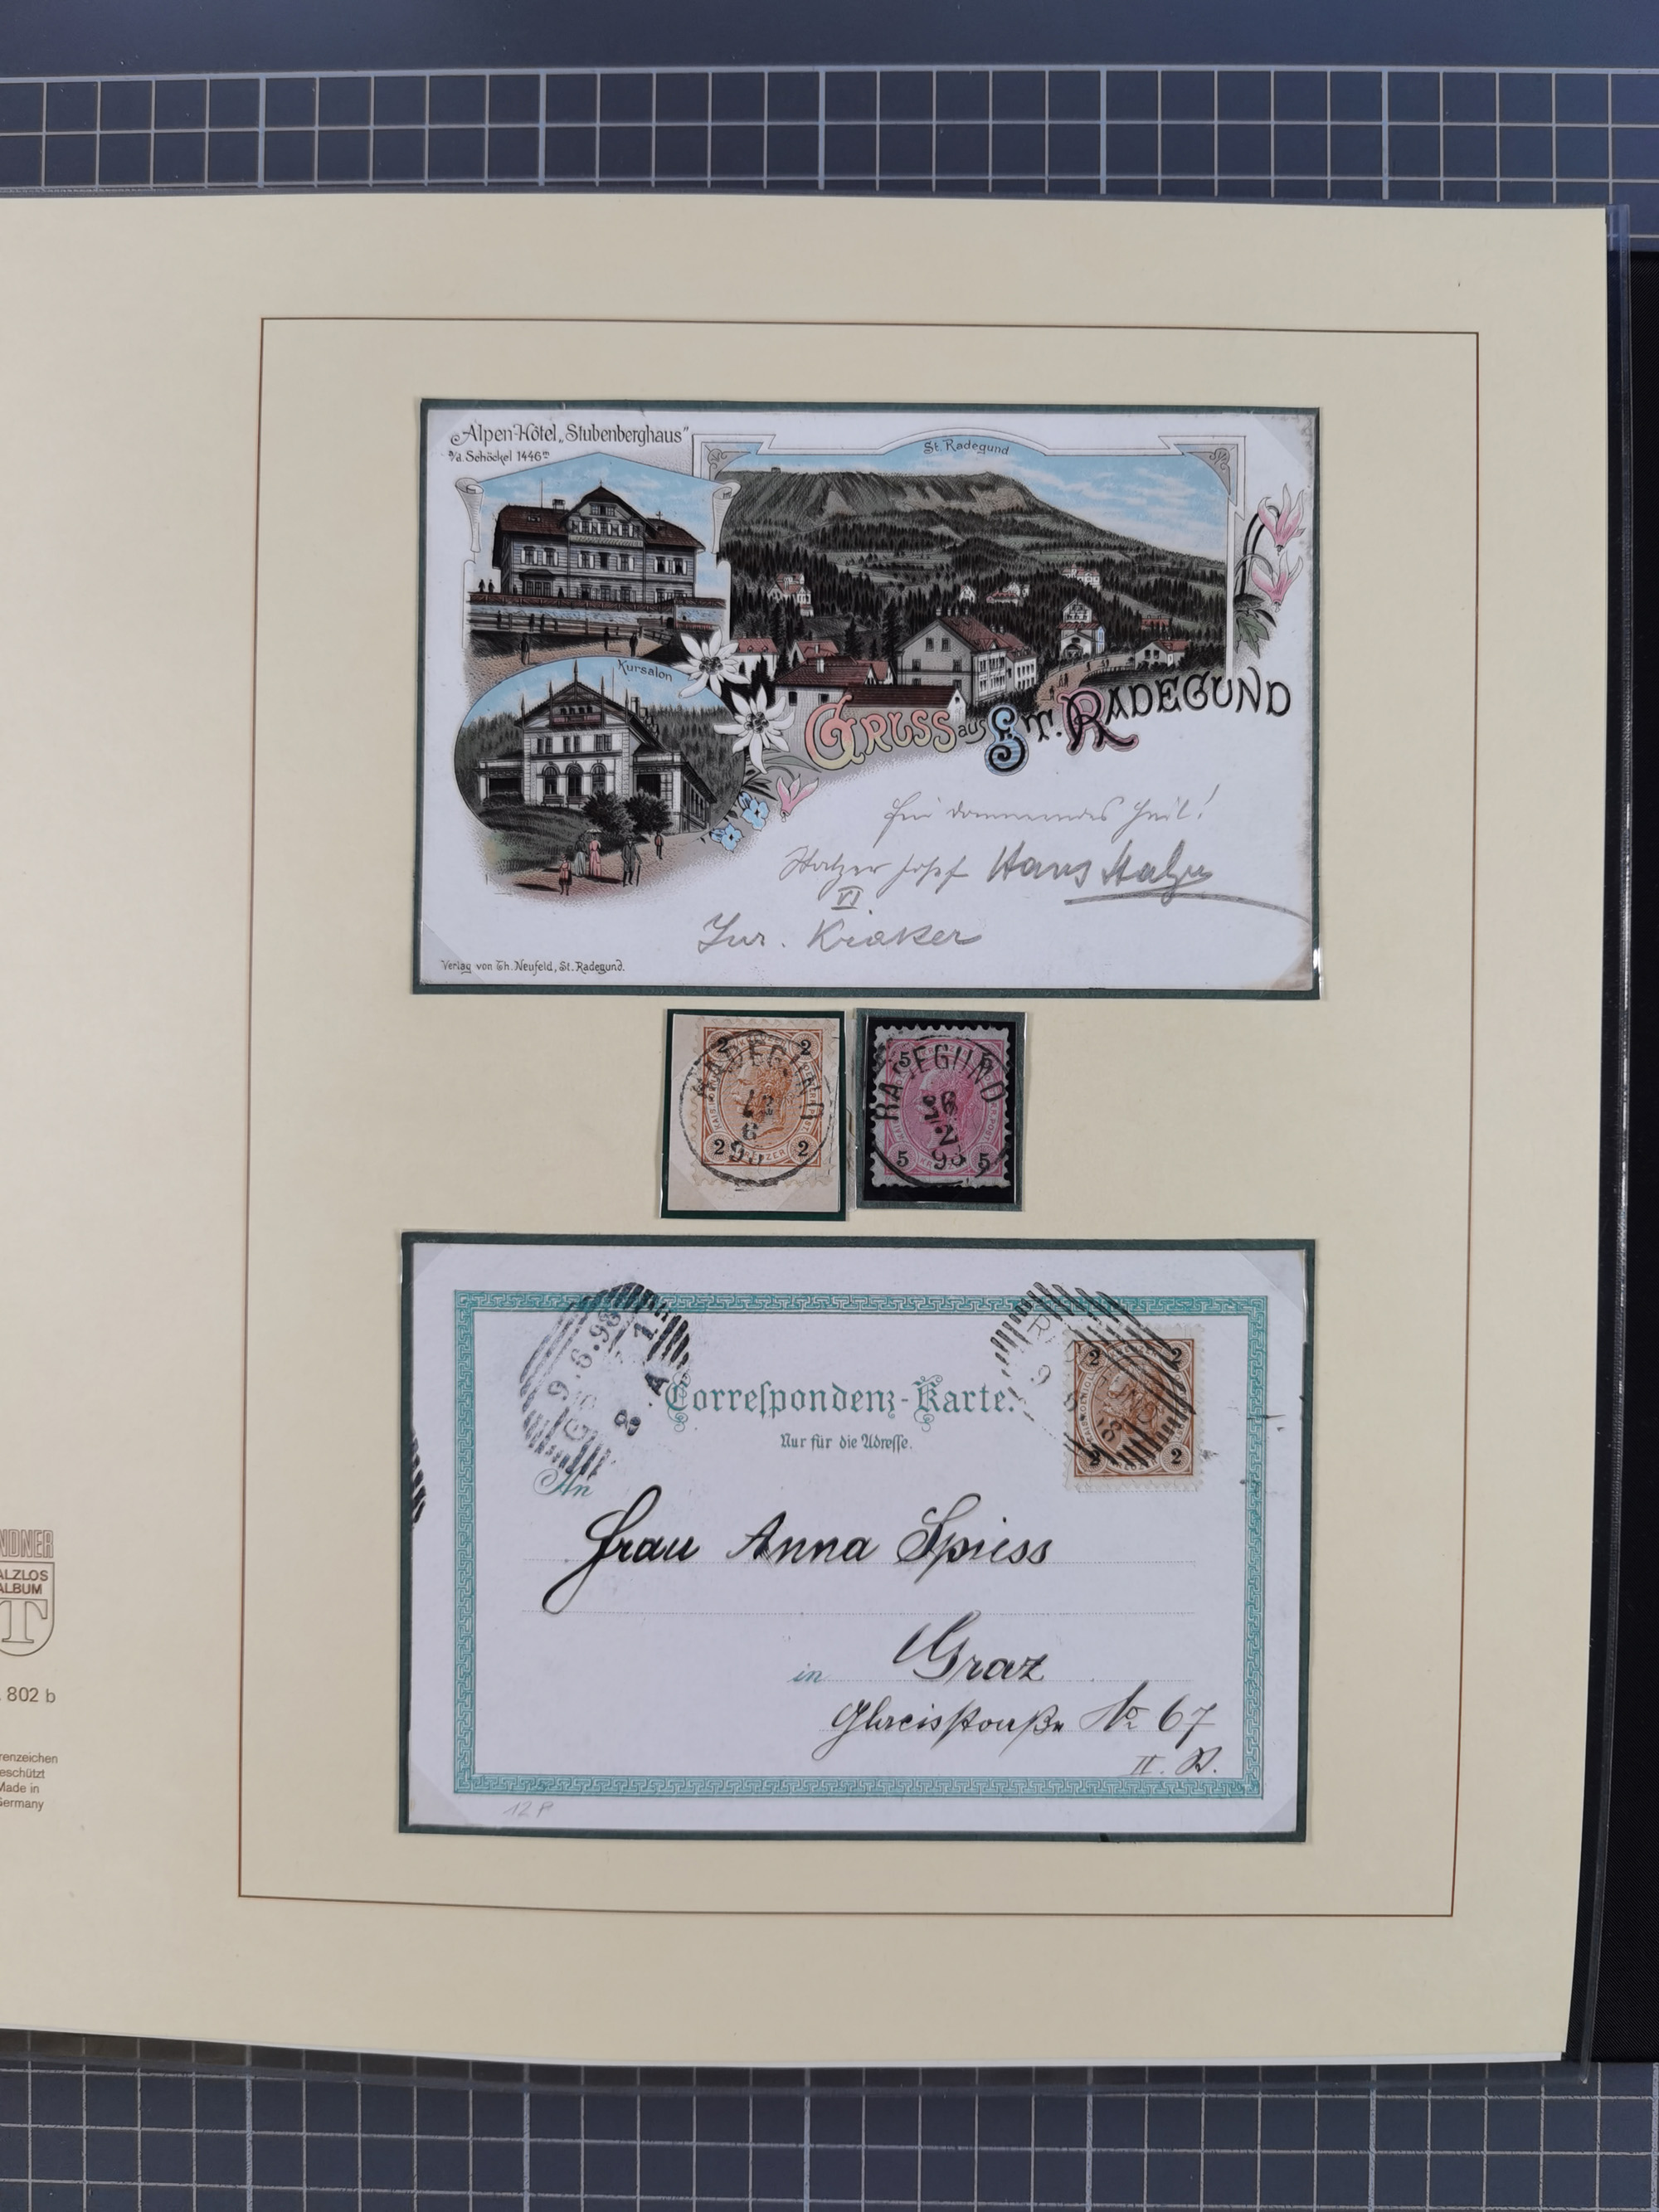 Alpen-Hôtel „Stubenberghaus"
a/d. Schöckel 1446m
St. Radegund
Kursalon
GRUSS aus ST. RADEGUND
Heil!
Hans
VI
Verlag von Th. Neufeld, St. Radegund.
2 2
RADEGUND
6
2 2
5 5
RADEGUND
2
93
5 5
9.6.98
8.A
1
Correspondenz-Karte.
Nur für die Adresse.
2 2
2 2
An
Frau Anna Spiess
in Graz
No 67
II.
12 P
NDNER
ALZLOS
ALBUM
T
802 b
renzeichen
eschützt
Made in
Germany